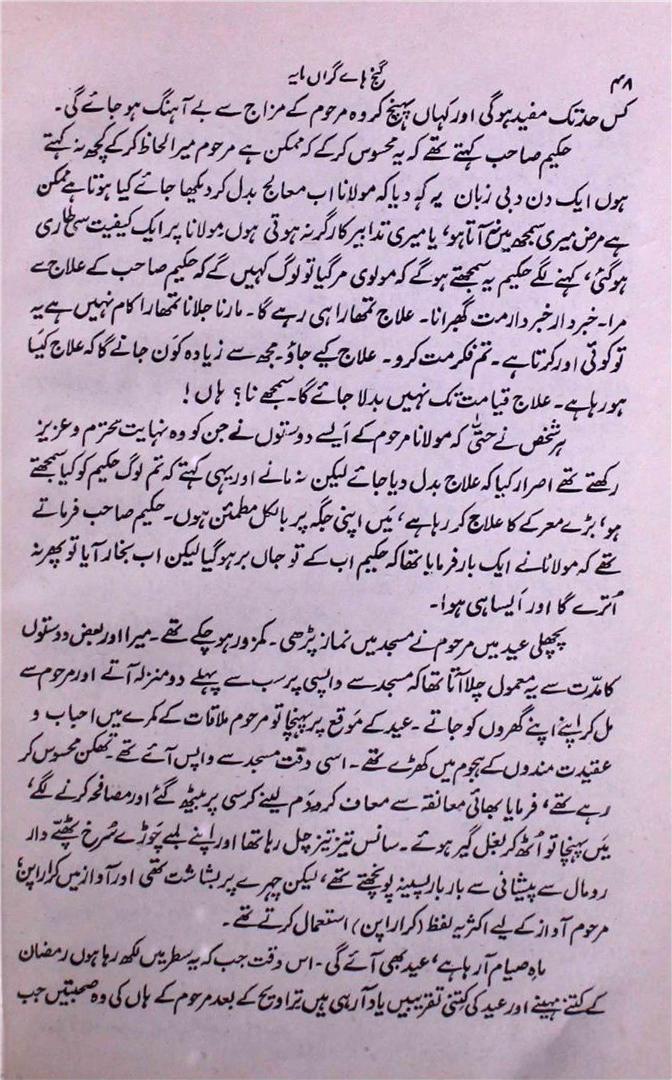 ۴۸
گنج ہاے گراں مایہ
کس حد تک مفید ہوگی اور کہاں پہنچ کر وہ مرحوم کے مزاج سے بے آہنگ ہو جائے گی۔
حکیم صاحب کہتے تھے کہ یہ محسوس کر کے کہ ممکن ہے مرحوم میرا لحاظ کر کے کچھ نہ کہتے
ہوں ایک دن دبی زبان یہ کہہ دیا کہ مولانا اب معالج بدل کر دیکھا جائے کیا ہوتا ہے ممکن
ہے مرض میری سمجھ میں نہ آتا ہو، یا میری تدابیر کارگر نہ ہوتی ہوں مولانا پر ایک کیفیت سی طاری
ہو گئی، کہنے لگے حکیم یہ سمجھتے ہو گے کہ مولوی مر گیا تو لوگ کہیں گے کہ حکیم صاحب کے علاج سے
مرا۔ خبردار خبردار مت گھبرانا۔ علاج تمھارا ہی رہے گا۔ مارنا جلانا تمھارا کام نہیں ہے یہ
تو کوئی اور کرتا ہے۔ تم فکر مت کرو۔ علاج کیے جاؤ۔ مجھ سے زیادہ کون جانے گا کہ علاج کیسا
ہو رہا ہے۔ علاج قیامت تک نہیں بدلا جائے گا۔ سمجھے نا؟ ہاں!
ہر شخص نے حتیٰ کہ مولانا مرحوم کے ایسے دوستوں نے جن کو وہ نہایت محترم و عزیز
رکھتے تھے اصرار کیا کہ علاج بدل دیا جائے لیکن نہ مانے اور یہی کہتے کہ تم لوگ حکیم کو کیا سمجھتے
ہو، بڑے معرکے کا علاج کر رہا ہے، میں اپنی جگہ پر بالکل مطمئن ہوں۔ حکیم صاحب فرماتے
تھے کہ مولانا نے ایک بار فرمایا تھا کہ حکیم اب کے تو جاں بر ہو گیا لیکن اب بخار آیا تو پھر نہ
اُترے گا اور ایسا ہی ہوا۔
پچھلی عید میں مرحوم نے مسجد میں نماز پڑھی۔ کمزور ہو چکے تھے۔ میرا اور بعض دوستوں
کا مدّت سے یہ معمول چلا آتا تھا کہ مسجد سے واپسی پر سب سے پہلے دو منزلہ آتے اور مرحوم سے
مل کر اپنے اپنے گھروں کو جاتے۔ عید کے موقع پر پہنچا تو مرحوم ملاقات کے کمرے میں احباب و
عقیدت مندوں کے ہجوم میں کھڑے تھے۔ اسی وقت مسجد سے واپس آئے تھے۔ تھکن محسوس کر
رہے تھے، فرمایا بھائی معانقہ سے معاف کرو دم لینے کرسی پر بیٹھ گئے اور مصافحہ کرنے لگے،
میں پہنچا تو اُٹھ کر بغل گیر ہوئے۔ سانس تیز تیز چل رہا تھا اور اپنے لمبے چوڑے سُرخ پھٹّے دار
رومال سے پیشانی سے بار بار پسینہ پونچھتے تھے، لیکن چہرے پر بشاشت تھی اور آواز میں کرارا پن،
مرحوم آواز کے لیے اکثر یہ لفظ (کرارا پن) استعمال کرتے تھے۔
ماہِ صیام آ رہا ہے، عید بھی آئے گی۔ اس وقت جب کہ یہ سطریں لکھ رہا ہوں رمضان
کے کتنے مہینے اور عید کی کتنی تقریبیں یاد آ رہی ہیں تراویح کے بعد مرحوم کے ہاں کی وہ صحبتیں جب